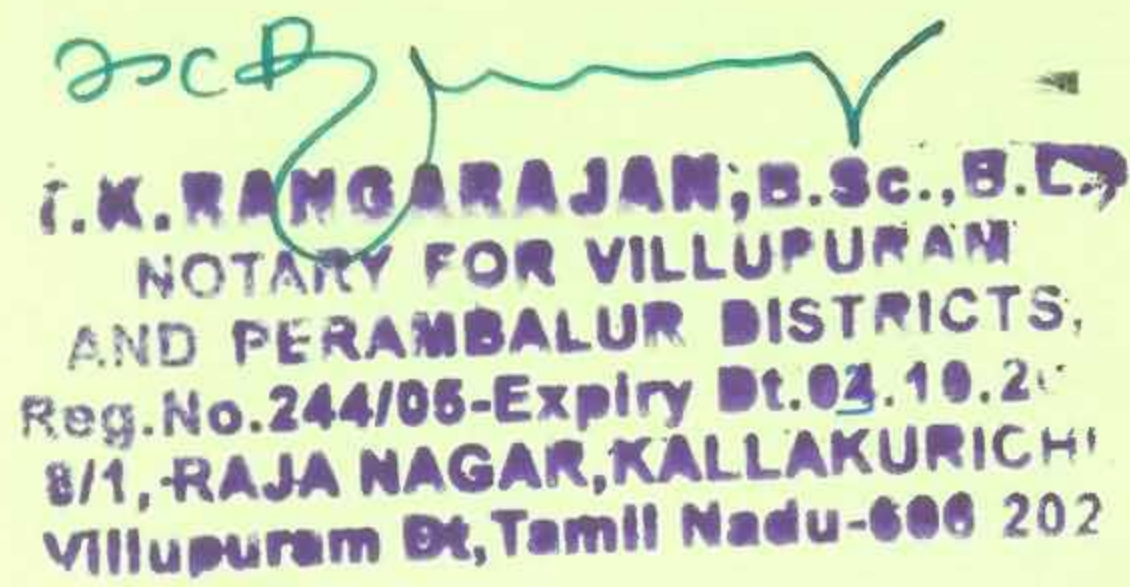 T.K.RANGARAJAN, B.Sc., B.L.,
NOTARY FOR VILLUPURAM
AND PERAMBALUR DISTRICTS,
Reg.No.244/05-Expiry
8/1, RAJA NAGAR, KALLAKURICHI
Villupuram Dt, Tamil Nadu-606 202